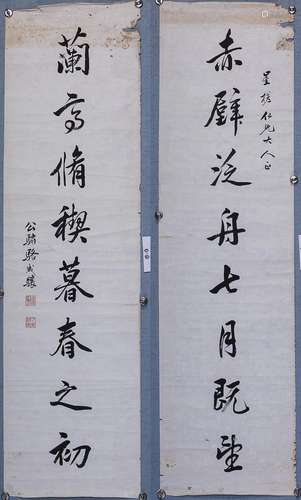 赤壁泛舟七月既望
仁兄大人正
蘭亭脩禊暮春之初
公驌駱成驤